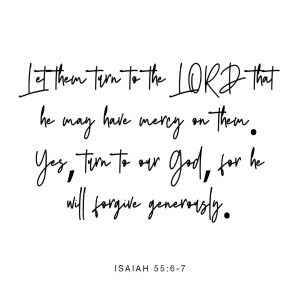 Let them turn to the LORD that
he may have mercy on them.
Yes, turn to our God, for he
will forgive generously.
ISAIAH 55:6-7